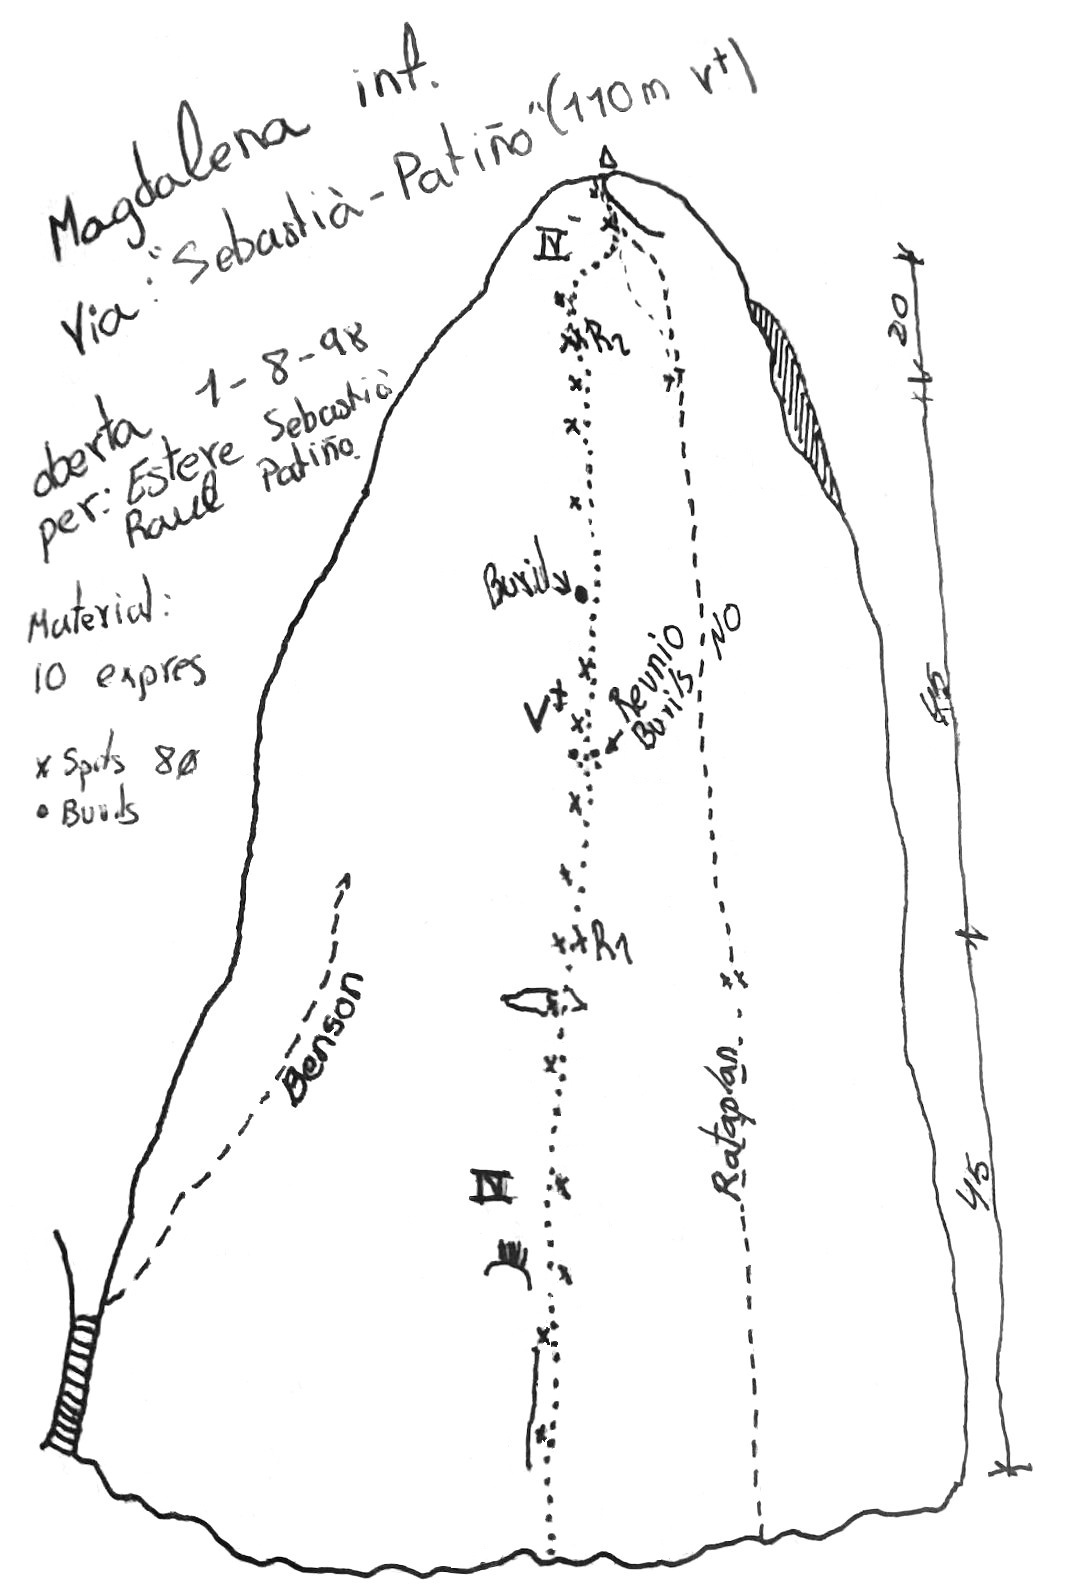 Magdalena inf.
Via: "Sebastià-Patiño" (110m V+)
oberta 1-8-98
per: Esteve Sebastià
Raul Patiño.
Material:
10 expres
x Spits 8ø
• Burils
IV
R2
20
Burils
V+
Reunio
Burils
NO
45
R1
Benson
Rataplán
IV
45